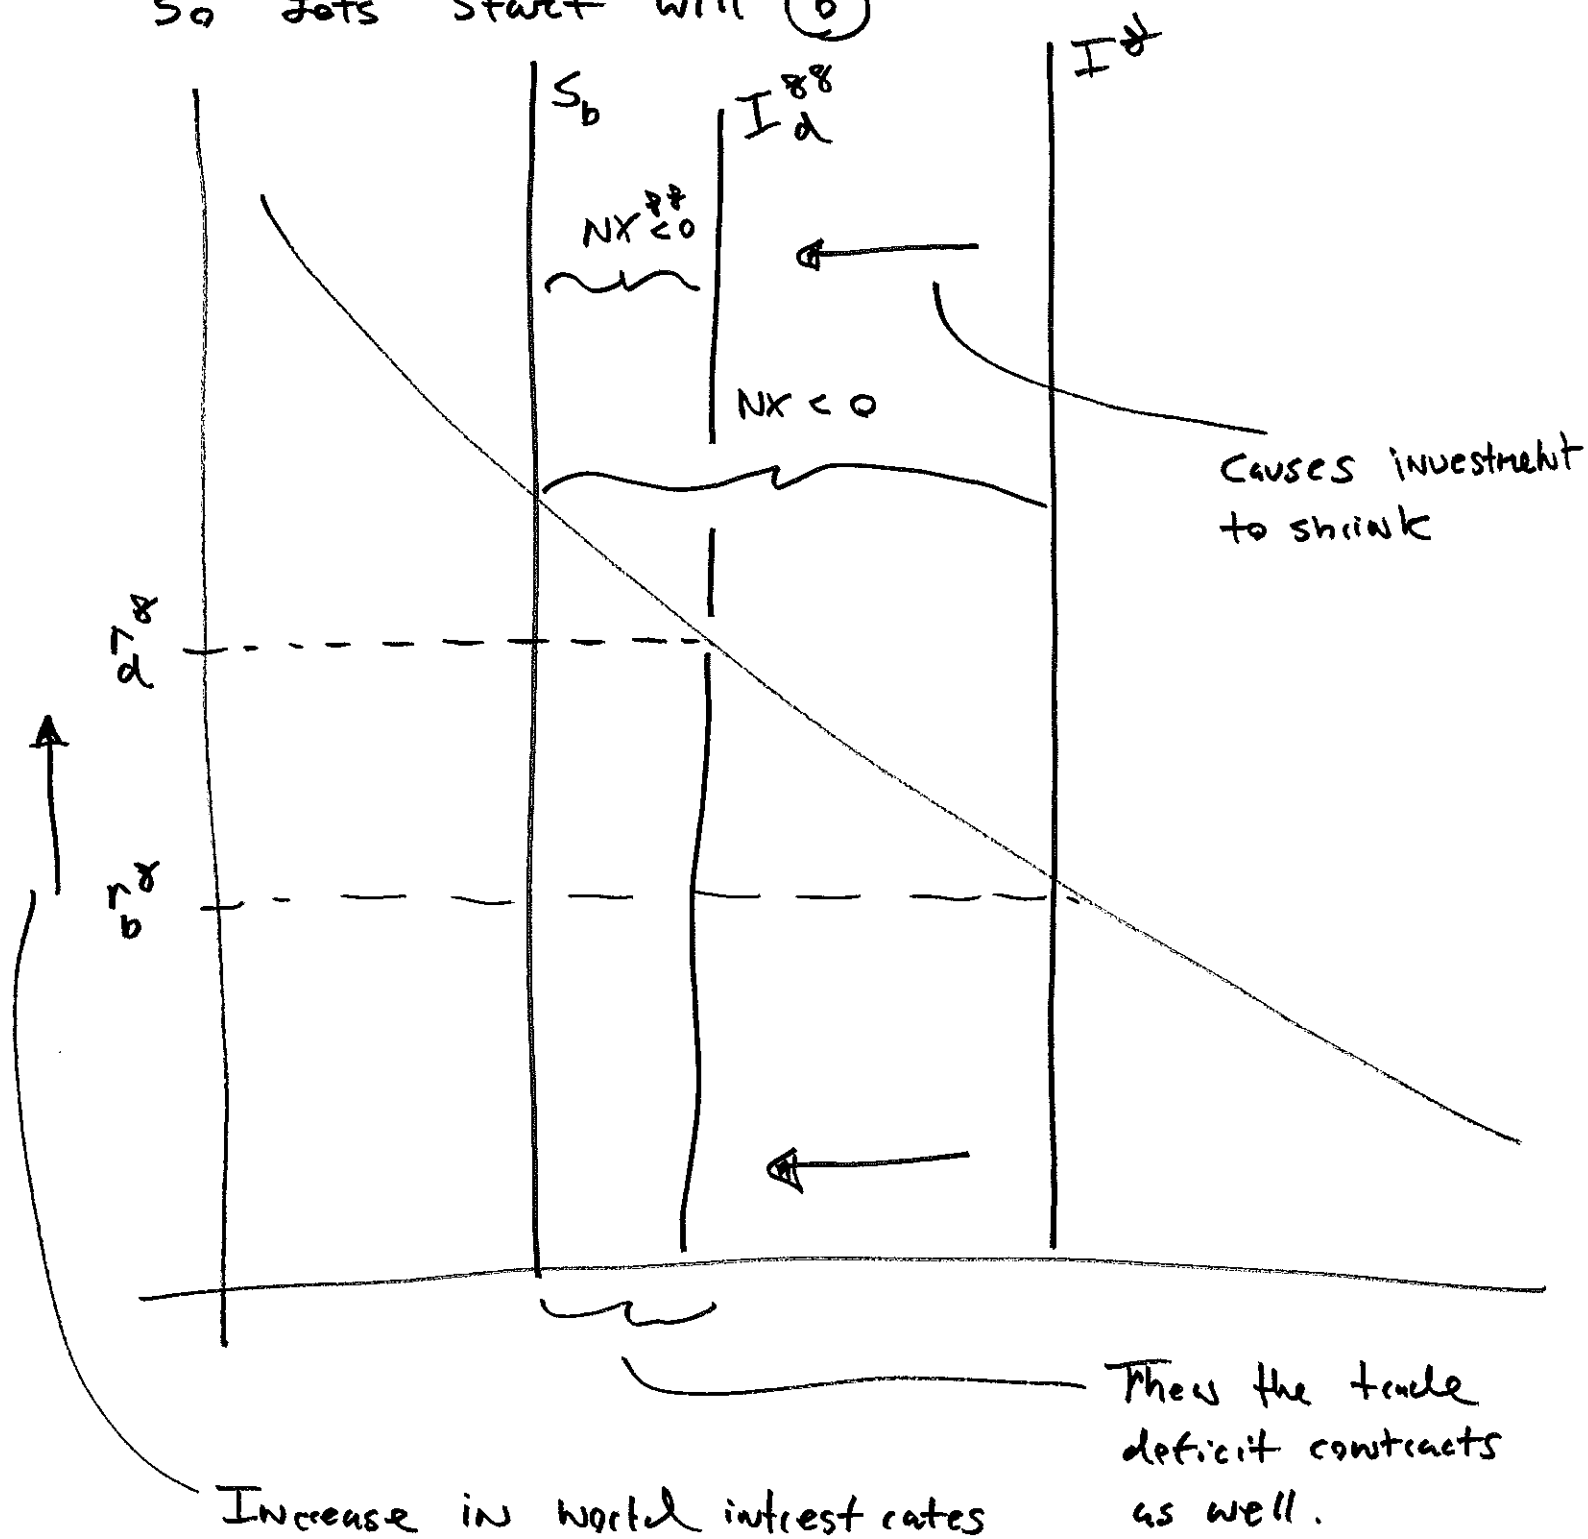 So Lets start will b
S_b
I_d^**
I^*
NX^** < 0
NX < 0
Causes investment
to shrink
r_d^*
r_b^*
Then the trade
deficit contracts
as well.
Increase in world intrest rates